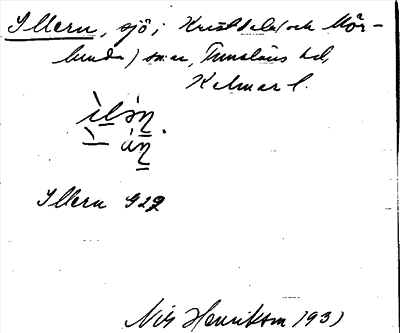 Illern, sjö, i Kristdala (och Mör-
lunda) snar, Tunaläns hd,
Kalmar l.
ìlə́ŋ.
Illern G29
Nils Henriksson 1931